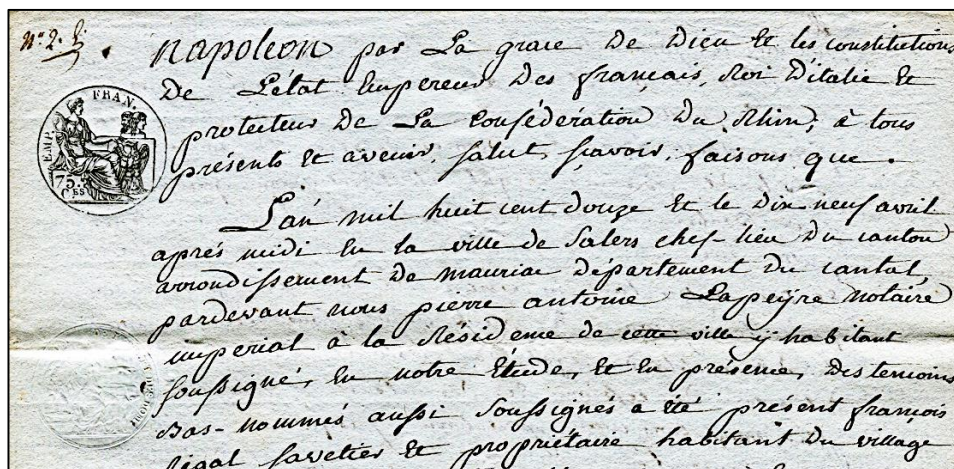 n.º 2.
napoléon par La grace De Dieu Et les constitutions
De L'état Empereur Des français, Roi D'italie Et
protecteur De La Confédération Du Rhin; à tous
présents Et avenir, Salut, sçavoir, faisons que.
EMP. FRAN.
75.
Ces
L'an mil huit cent Douze Et le Dix neuf avril
après midi En la ville de Salers chef-lieu Du canton
arrondissement De mauriac Département Du cantal,
pardevant nous pierre antoine Lapeÿre Notaire
impérial à la Résidence de cette ville ÿ habitant
soussigné, En notre Étude, Et En présence, Des témoins
Bas-Nommés aussi Soussignés a été présent françois
Rigal savetier Et propriétaire habitant Du village